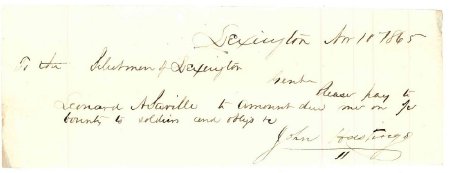 Lexington Nov 10 1865
To the Selectmen of Lexington
Please pay to
Leonard A Saville the amount due me on
bounty to soldiers and oblige
John Hastings